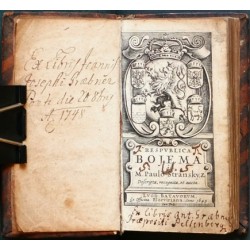 Ex libris Joannis
Josephi Grabner
die 20
A. 1748
RESPUBLICA
BOIEMA
M. Pauli Stranskii
descripta, recognita et aucta
LUGD. BATAVORUM
Ex Officina Elzeviriana
Ex Libris Ant. Grabner